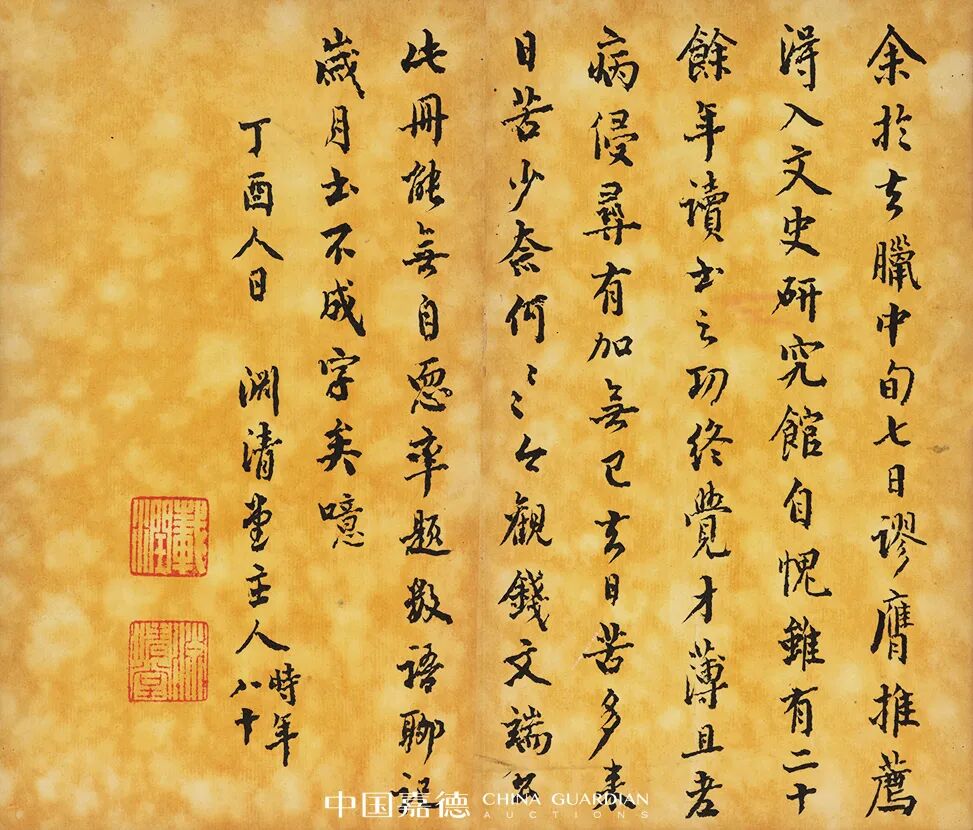 余於去臘中旬七日謬膺推薦
得入文史研究館自愧雖有二十
餘年讀書之功終覺才薄且老
病侵尋有加無已去日苦多來
日苦少奈何〻〻今觀錢文端公
此冊能無自恧率題數語聊記
歲月書不成字矣噫
丁酉人日 渊清堂主人 時年八十
載潤
淵清堂
中国嘉德 CHINA GUARDIAN AUCTIONS